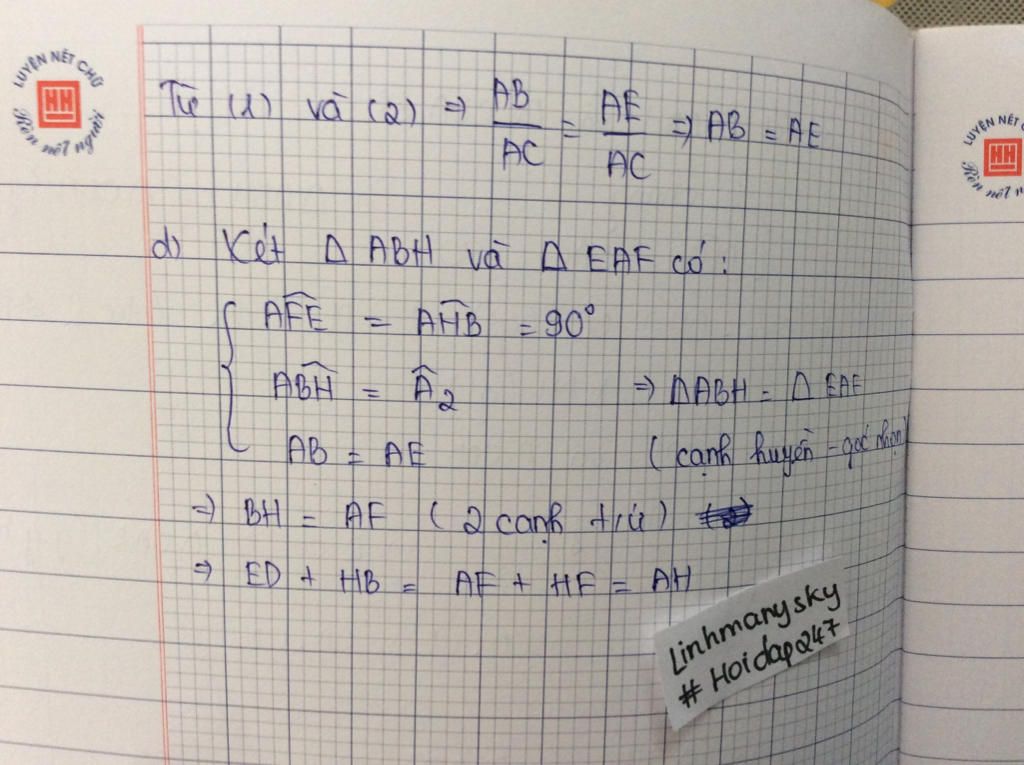 LUYỆN NÉT CHỮ
HH
Rèn nết người
Từ (1) và (2) ⇒ AB/AC = AE/AC ⇒ AB = AE
d) Xét Δ ABH và Δ EAF có:
AF̂E = AĤB = 90°
AB̂H = Â₂ ⇒ ΔABH = Δ EAF
AB = AE (cạnh huyền - góc nhọn)
⇒ BH = AF (2 cạnh t/ứ)
⇒ ED + HB = AF + HF = AH
Linhmanysky
# Hoidap247
LUYỆN NÉT CH
HH
Rèn nết n